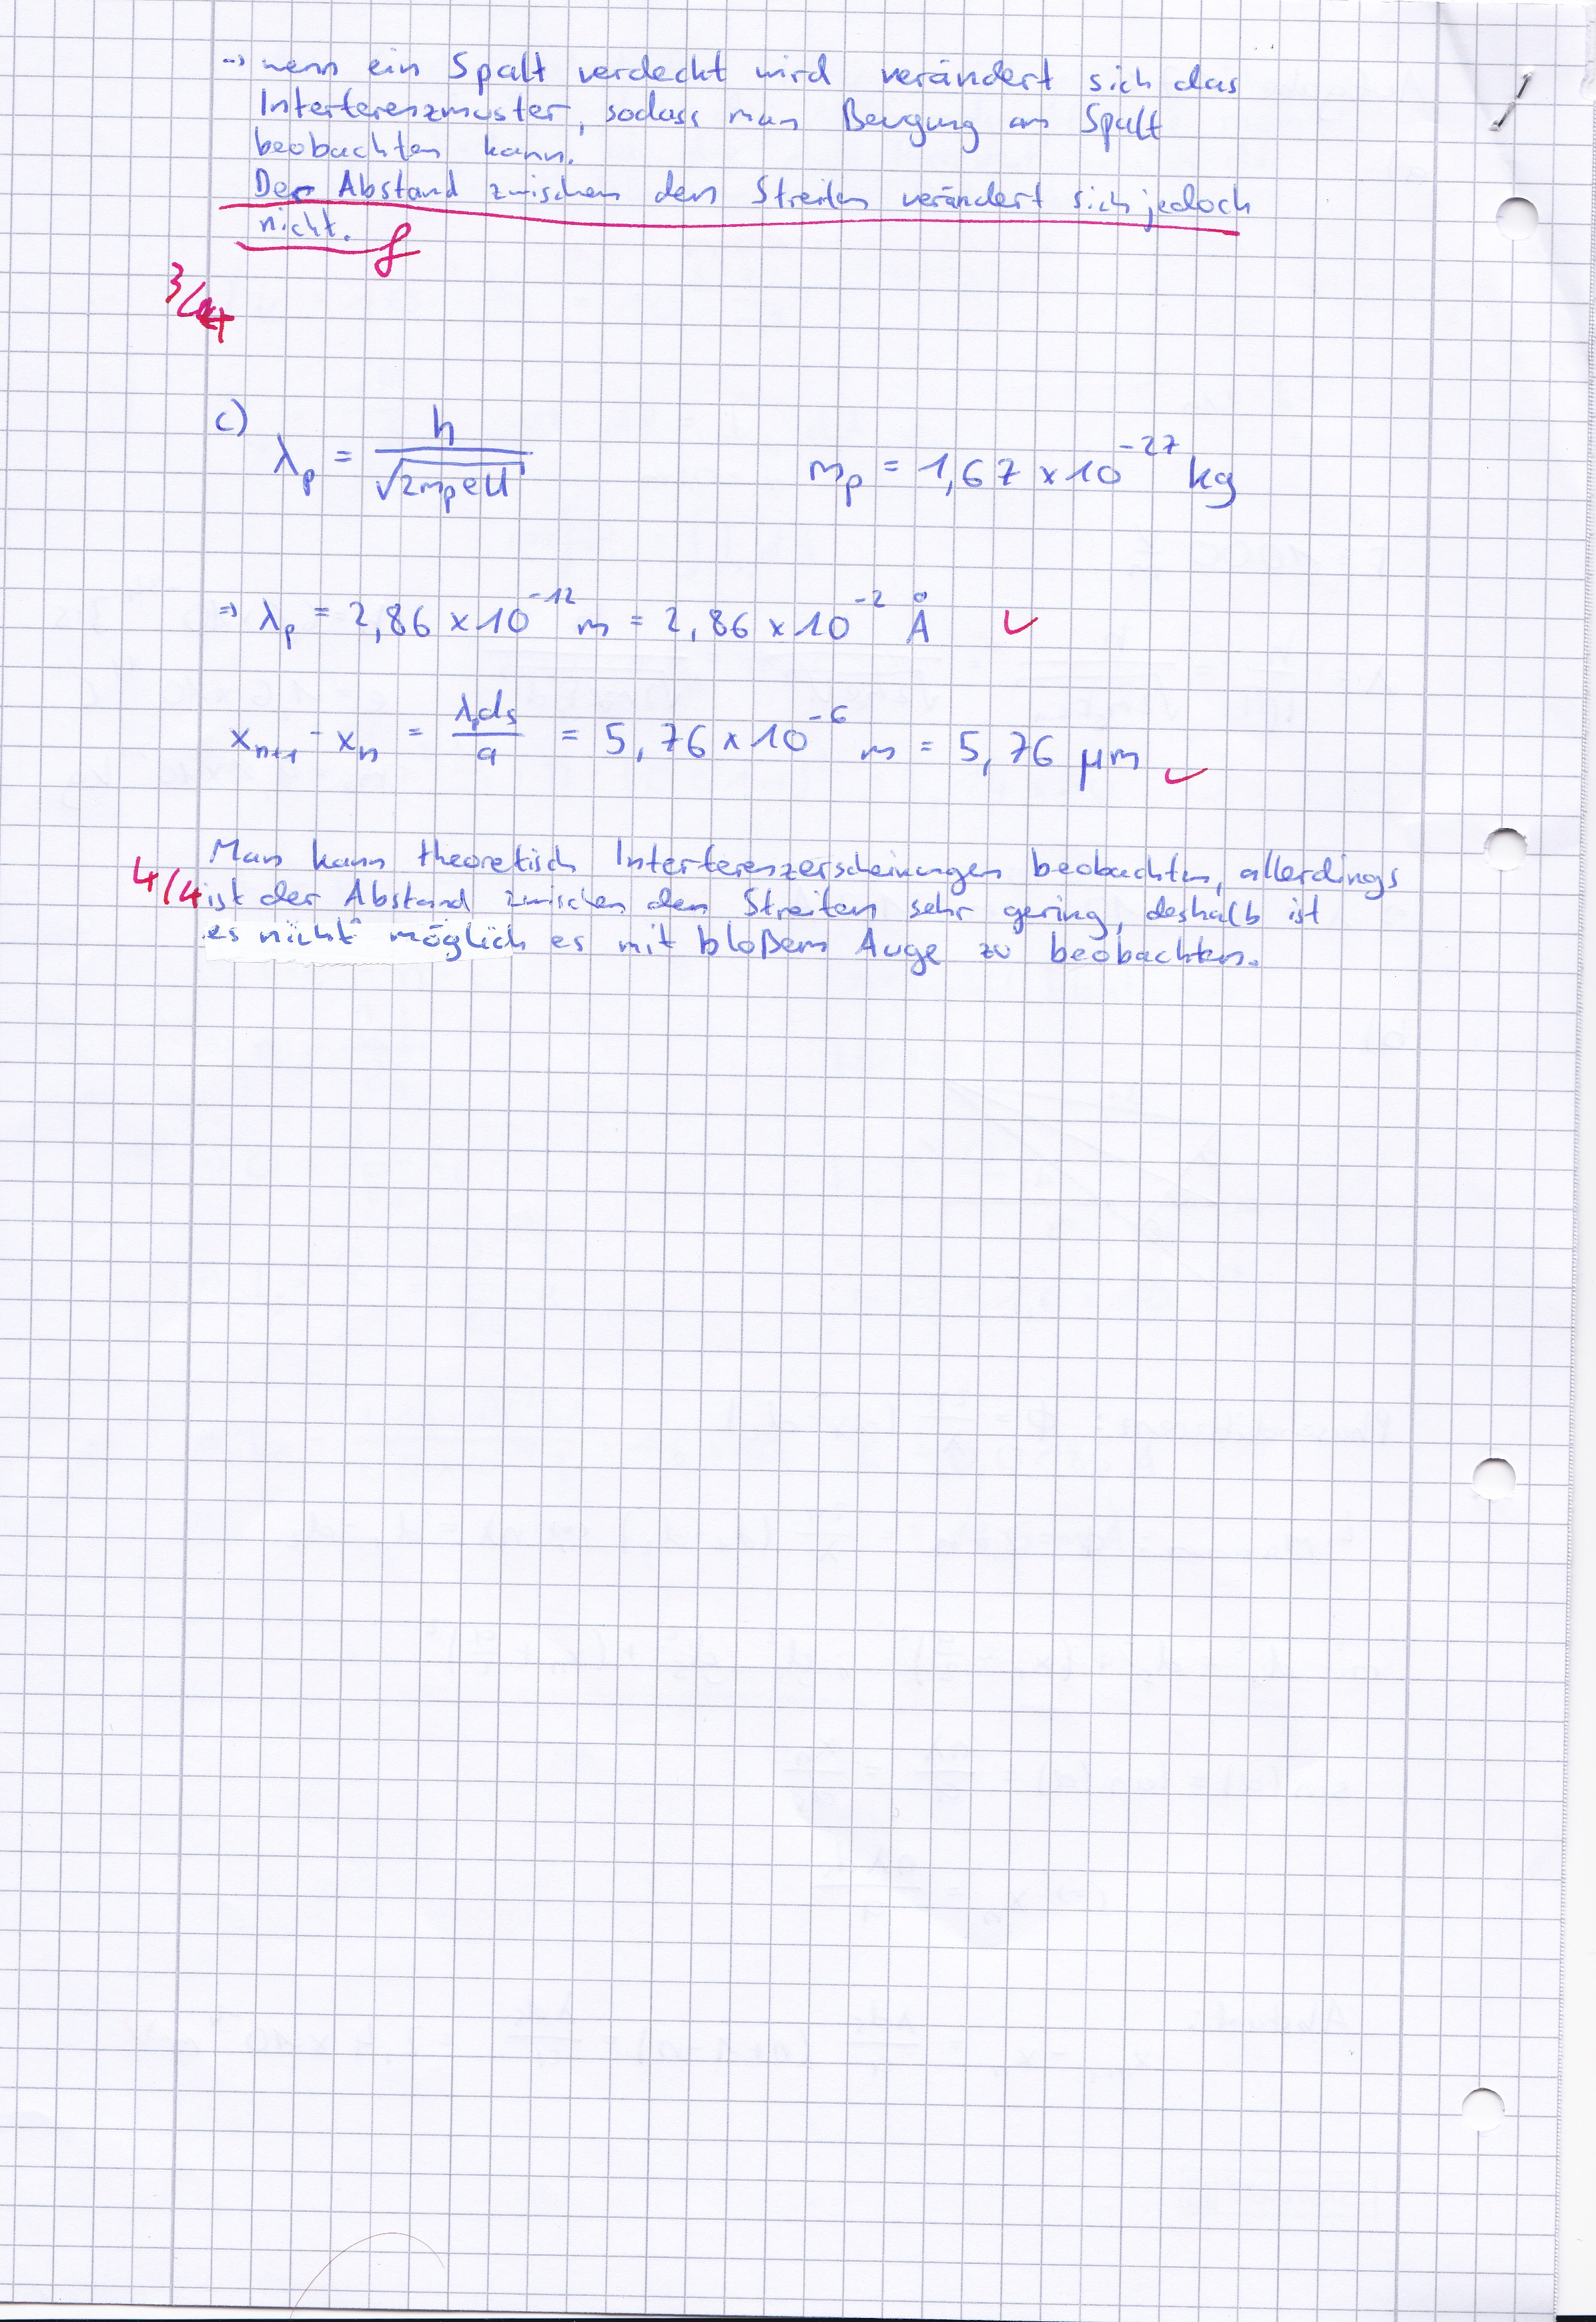 → wenn ein Spalt verdeckt wird verändert sich das
Interferenzmuster, sodass man Beugung am Spalt
beobachten kann.
Der Abstand zwischen den Streifen verändert sich jedoch
nicht. f
3/4
c) λ_p = h / √(2m_p eU)    m_p = 1,67 × 10^-27 kg
⇒ λ_p = 2,86 × 10^-12 m = 2,86 × 10^-2 Å ✓
x_n+1 - x_n = λ_p d_s / a = 5,76 × 10^-6 m = 5,76 μm ✓
Man kann theoretisch Interferenzerscheinungen beobachten, allerdings
4/4 ist der Abstand zwischen den Streifen sehr gering, deshalb ist
es nicht möglich es mit bloßem Auge zu beobachten.